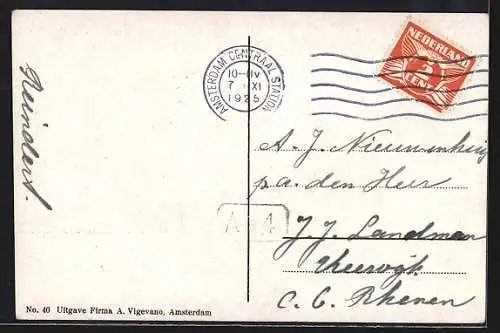 Reindert.
AMSTERDAM CENTRAAL STATION
10-11V
7 XI
1925
NEDERLAND
2
CENT
A. J. Nieuwenhuig
p.a. den Heer
J. J. Landman
C. G. Rhenen
No. 46 Uitgave Firma A. Vigevano, Amsterdam